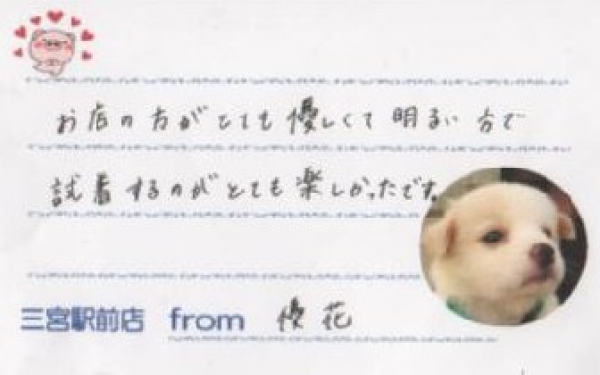 お店の方がとても優しくて明るい方で
試着するのがとても楽しかったです。
三宮駅前店 from 優花